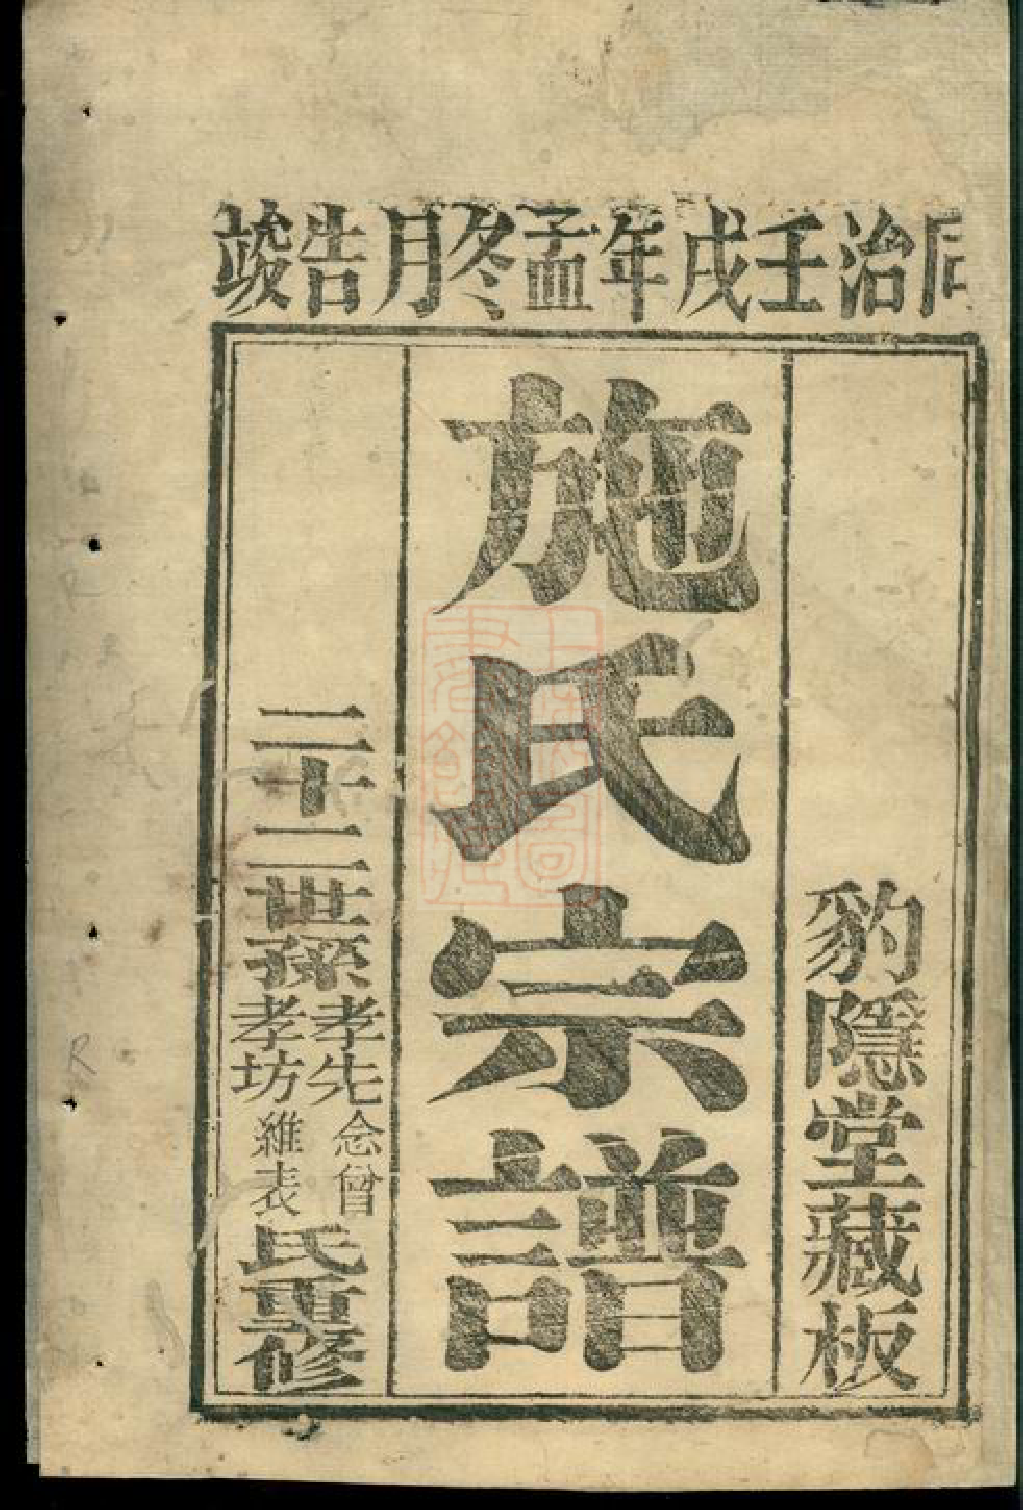 同治壬戌年孟冬月告竣
豹隱堂藏板
施氏宗譜
二十二世孫
孝先念曾
孝坊維表
氏重修